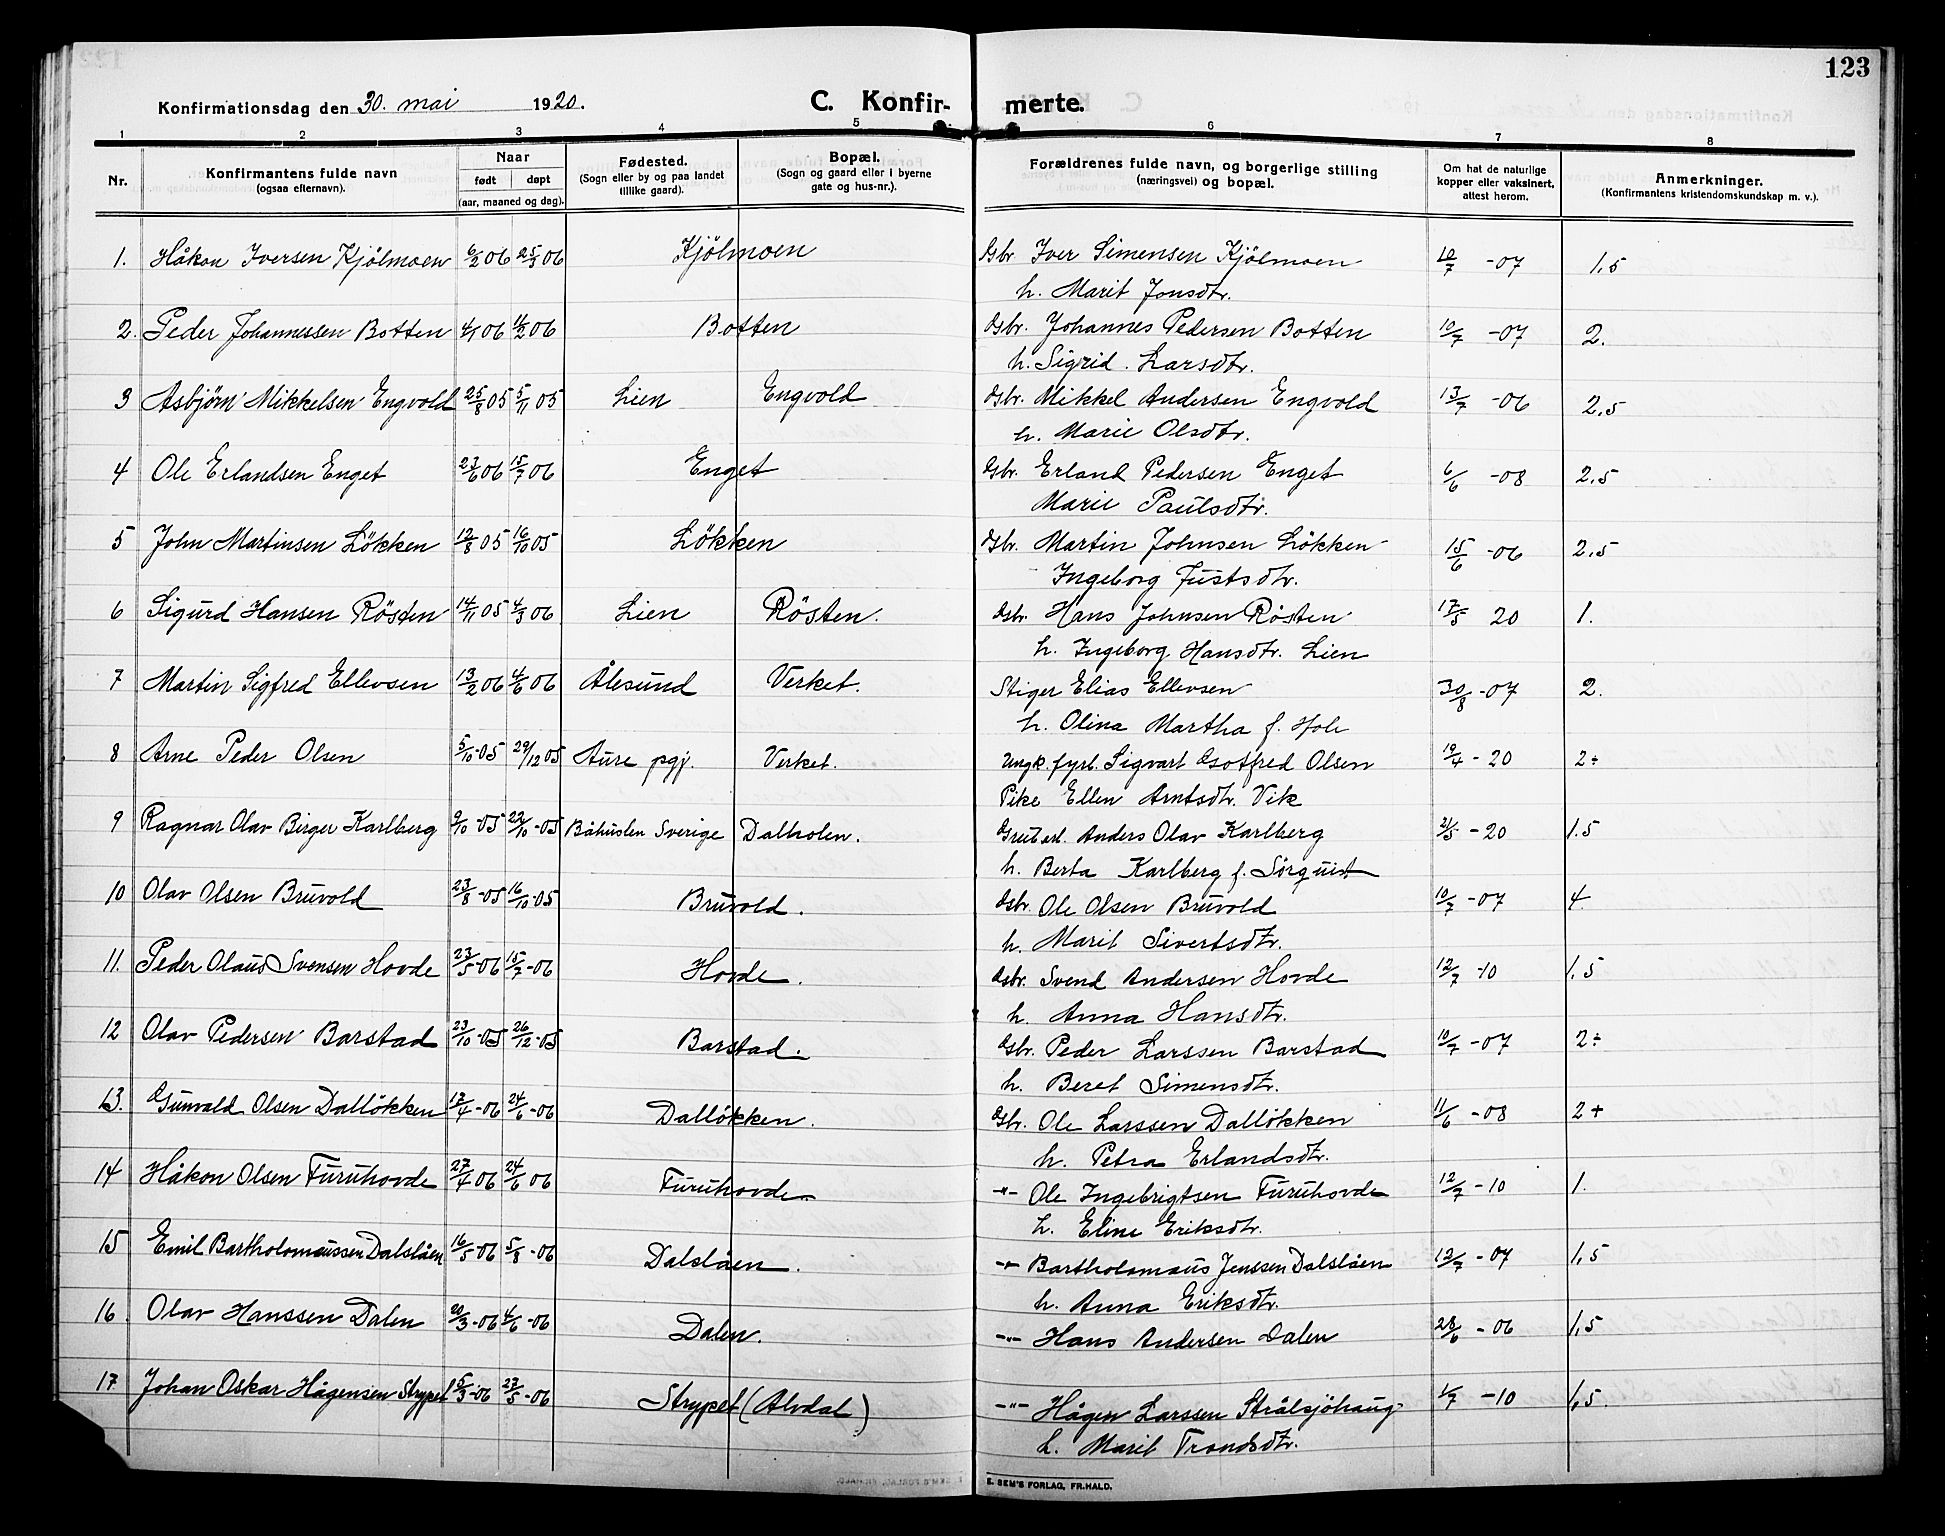 123
Konfirmationsdag den 30. mai 1920.
C. Konfir- merte.
1 2 3 4 5 6 7 8
Nr. Konfirmantens fulde navn (ogsaa efternavn). Naar født døpt (aar, maaned og dag). Fødested. (Sogn eller by og paa landet tillike gaard). Bopæl. (Sogn og gaard eller i byerne gate og hus-nr.). Forældrenes fulde navn, og borgerlige stilling (næringsvei) og bopæl. Om hat de naturlige kopper eller vaksinert, attest herom. Anmerkninger. (Konfirmantens kristendomskundskap m. v.).
1. Håkon Iversen Kjölmoen 6/2 06 25/3 06 Kjölmoen Gbr. Iver Simensen Kjölmoen 10/7 -07 1,5
h. Marit Jonsdtr.
2. Peder Johannessen Botten 4/1 06 11/2 06 Botten Gbr. Johannes Pedersen Botten 10/7 -07 2.
h. Sigrid Larsdtr.
3 Asbjørn Mikkelsen Engvold 25/8 05 5/11 05 Lien Engvold Gbr. Mikkel Andersen Engvold 13/7 -06 2,5
h. Marie Olsdtr.
4 Ole Erlandsen Enget 27/6 06 15/7 06 Enget Gbr. Erland Pedersen Enget 6/6 -08 2,5
Marie Paulsdtr.
5 John Martinsen Lökken 12/8 05 16/10 05 Lökken Gbr. Martin Johnsen Lökken 15/6 -06 2,5
Ingeborg Justsdtr.
6 Sigurd Hansen Rösten 14/11 05 4/3 06 Lien Rösten. Gbr. Hans Johnsen Rösten 17/5 20 1.
h. Ingeborg Hansdtr. Lien
7 Martin Sigfred Ellevsen 13/2 06 4/6 06 Ålesund Verket. Stiger Elias Ellevsen 30/8 -07 2.
h. Olina Martha f. Hole
8 Arne Peder Olsen 5/10 -05 29/12 05 Aure pgj. Verket. Ungk. fyrb. Sigvart Gotfred Olsen 19/4 -20 2÷
Pike Ellen Arntsdtr. Vik
9 Ragnar Olav Birger Karlberg 9/10 -05 22/10 -05 Båhuslen Sverige Dalholen. Anders Olav Karlberg 21/5 -20 1.5
h. Berta Karlberg f. Sörquist
10 Olav Olsen Bruvold 23/8 -05 16/10 -05 Bruvold. Gbr. Ole Olsen Bruvold 10/7 -07 4.
h. Marit Sivertsdtr.
11. Peder Olaus Svensen Hovde 23/5 -06 15/7 -06 Hovde. Gbr. Svend Andersen Hovde 12/7 -10 1,5
h. Anna Hansdtr.
12 Olav Pedersen Barstad 23/10 -05 26/12 -05 Barstad. Gbr. Peder Larssen Barstad 10/7 -07 2÷
h. Beret Simensdtr.
13. Gunvald Olsen Dallökken 17/4 -06 24/6 -06 Dallökken. Gbr. Ole Larssen Dallökken 11/6 -08 2+
h. Petra Erlandsdtr.
14 Håkon Olsen Furuhovde 27/4 06 24/6 06 Furuhovde -"- Ole Ingebrigtsen Furuhovde 12/7 -10 1.
h. Eline Eriksdtr.
15 Emil Bartholomæussen Dalslåen 16/5 -06 5/8 -06 Dalslåen. -"- Bartholomæus Jenssen Dalslåen 12/7 -07 1,5
h. Anna Eriksdtr.
16 Olav Hanssen Dalen 20/3 -06 4/6 -06 Dalen. -"- Hans Andersen Dalen 28/6 -06 1,5
17 Johan Oskar Hågensen Strypet 5/3 -06 27/5 -06 Strypet (Alvdal) -"- Hågen Larssen Strålsjöhaug 1/7 -10 1,5.
h. Marit Trondsdtr.
E. SEM'S FORLAG, FR.HALD.